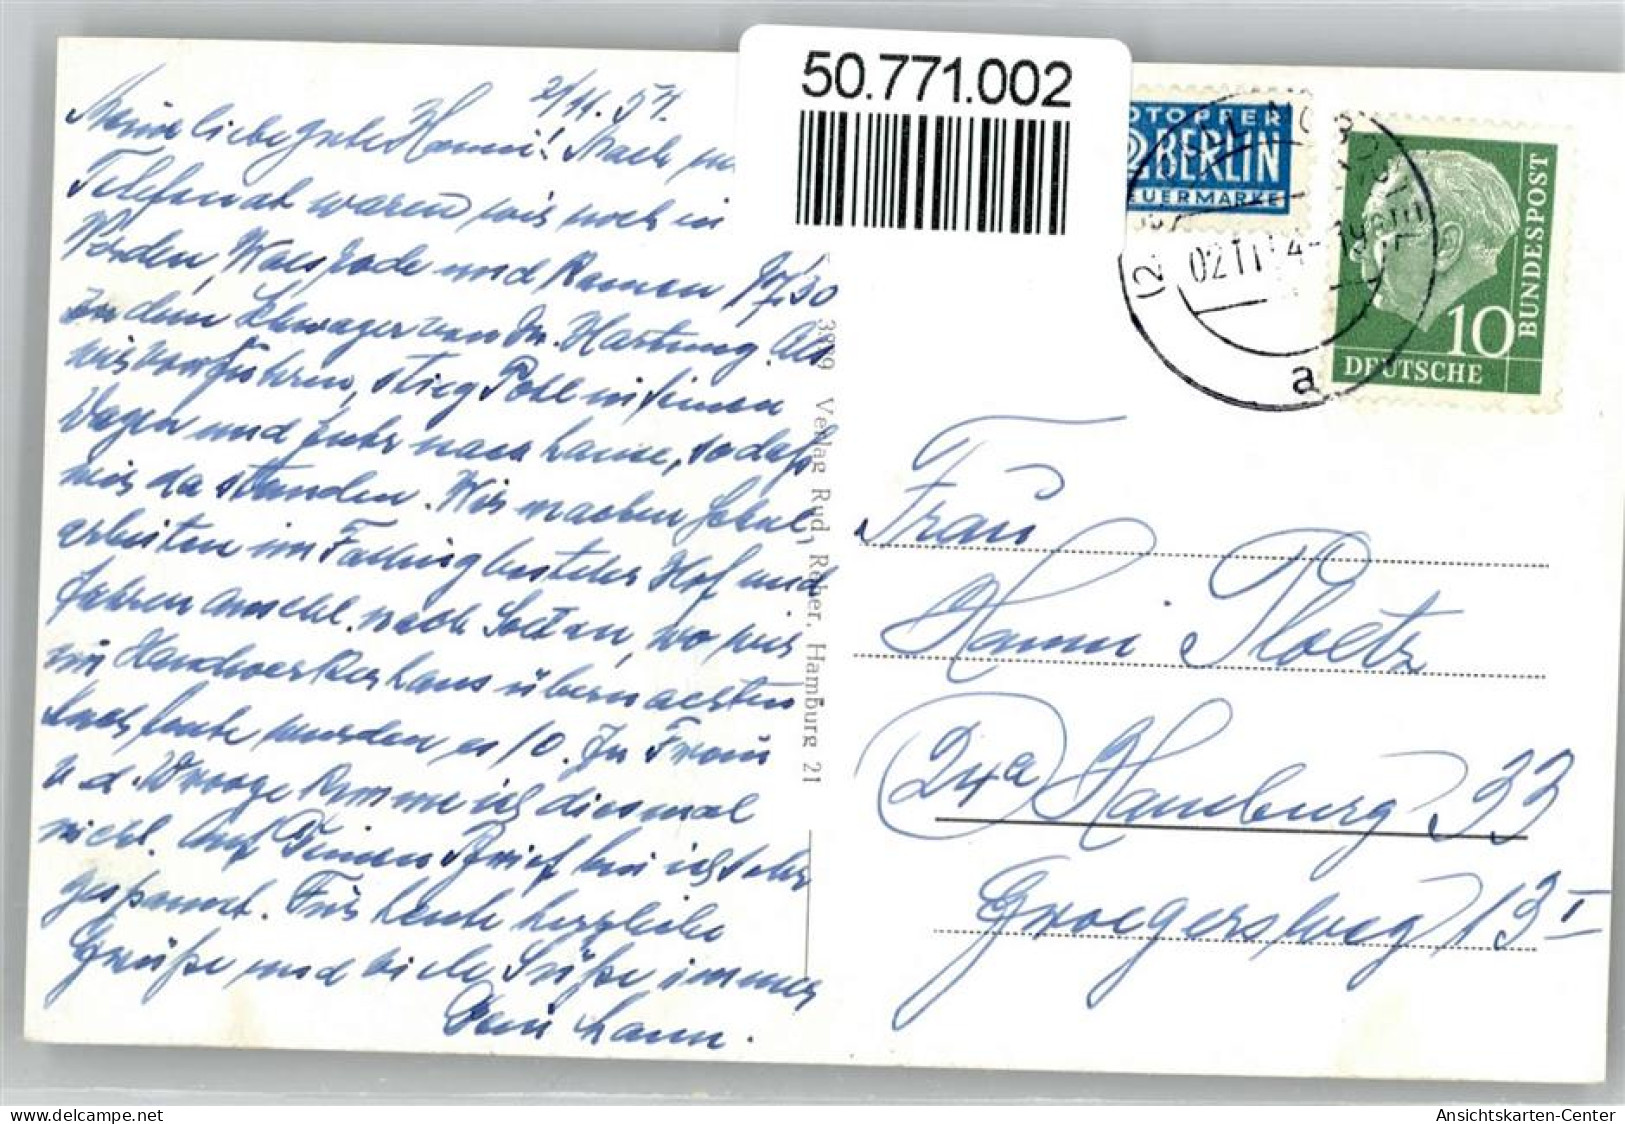 50.771.002
2/11.54.
Meine liebe gute Hanni! Nach
Telefonat waren wir noch in
Verden, Walsrode und kamen 17,30
zu dem Schwager von Dr. Hartung. Als
wir vorfuhren, stieg Pohl in seinen
Wagen und fuhr nach Hause, so daß
wir da standen. Wir machen Lokal,
arbeiten im Fallingbosteler Hof und
fahren anschl. nach Soltau, wo wir
im Handwerkerhaus übernachten
Auch heute wurden es 10. Zu Frau
v. d. Wrooge komme ich diesmal
nicht. Auf Deinen Brief bin ich sehr
gespannt. Für heute herzliche
Grüße und viele Süße immer
Dein Mann.
3899 Verlag Rud. Reher, Hamburg 21
NOTOPFER
2 BERLIN
STEUERMARKE
02.11.54-19
a
10
DEUTSCHE
BUNDESPOST
Frau
Hanni Ploetz
24a Hamburg 33
Groegersweg 13 I
Ansichtskarten-Center